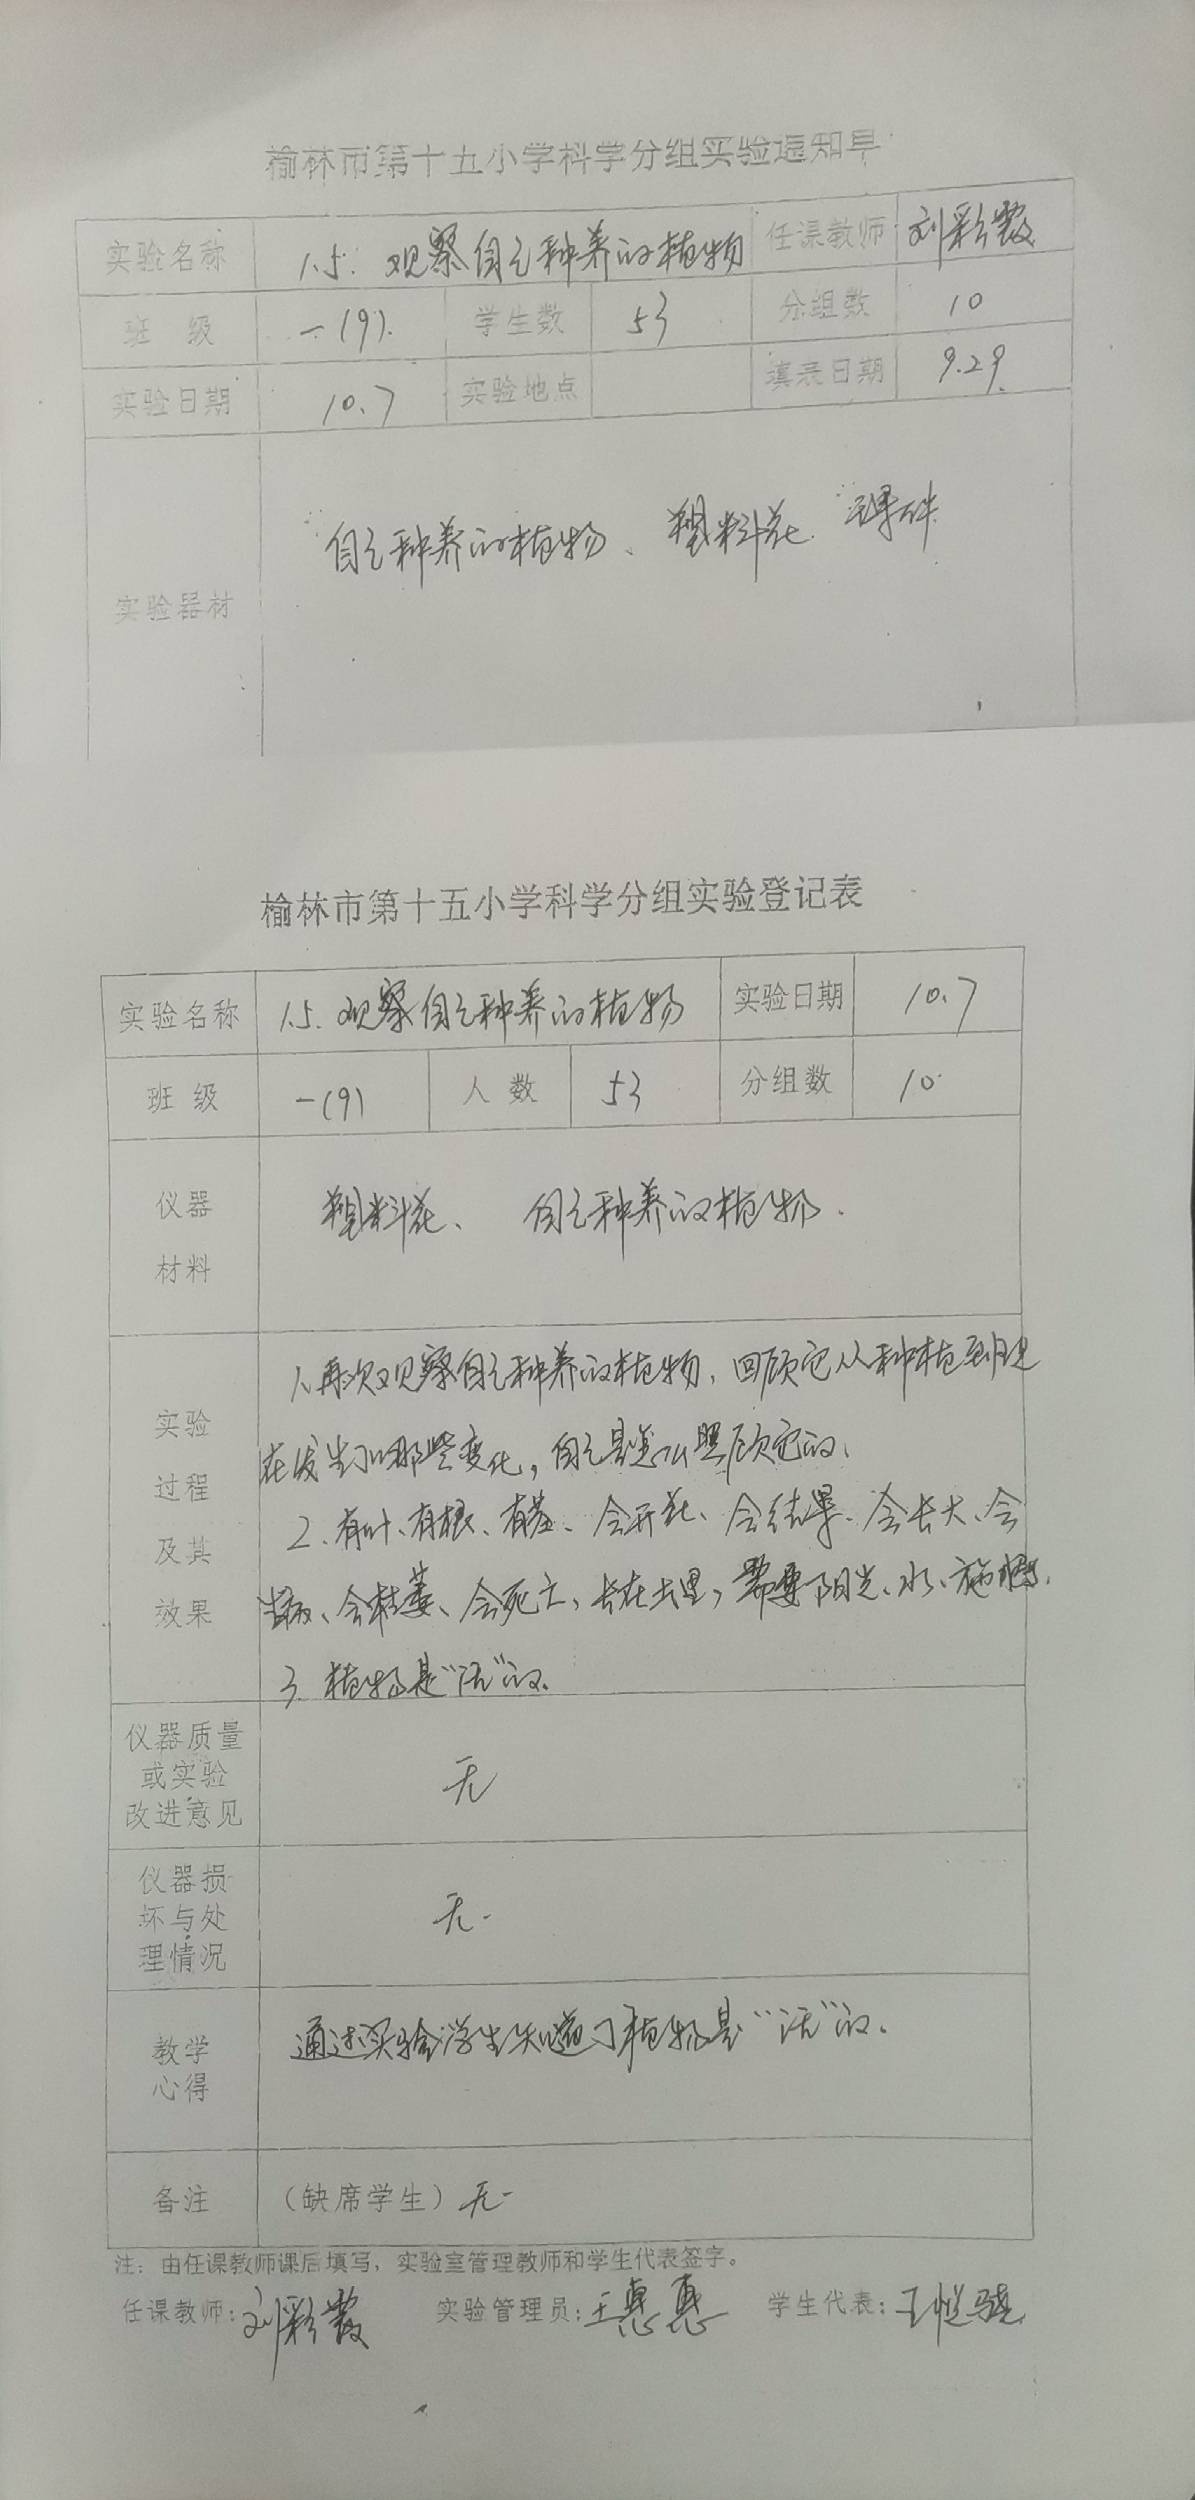 榆林市第十五小学科学分组实验通知单
实验名称 1.5. 观察自己种养的植物 任课教师 刘彩霞
班 级 一(9). 学生数 53 分组数 10
实验日期 10.7 实验地点 填表日期 9.29
实验器材 自己种养的植物、塑料花. 课件
榆林市第十五小学科学分组实验登记表
实验名称 1.5. 观察自己种养的植物 实验日期 10.7
班 级 一(9) 人 数 53 分组数 10
仪器
材料
塑料花、 自己种养的植物.
实验
过程
及其
效果
1、再次观察自己种养的植物,回顾它从种植到现
在发生了哪些变化,自己是怎么照顾它的、
2、有叶、有根、有茎、会开花、会结果、会长大、会
生病、会枯萎、会死亡,长在土里,需要阳光、水、施肥.
3. 植物是“活”的.
仪器质量
或实验
改进意见
无
仪器损
坏与处
理情况
无.
教学
心得
通过实验学生知道了植物是“活”的.
备注 (缺席学生) 无.
注: 由任课教师课后填写,实验室管理教师和学生代表签字。
任课教师: 刘彩霞 实验管理员: 王惠惠 学生代表: 王